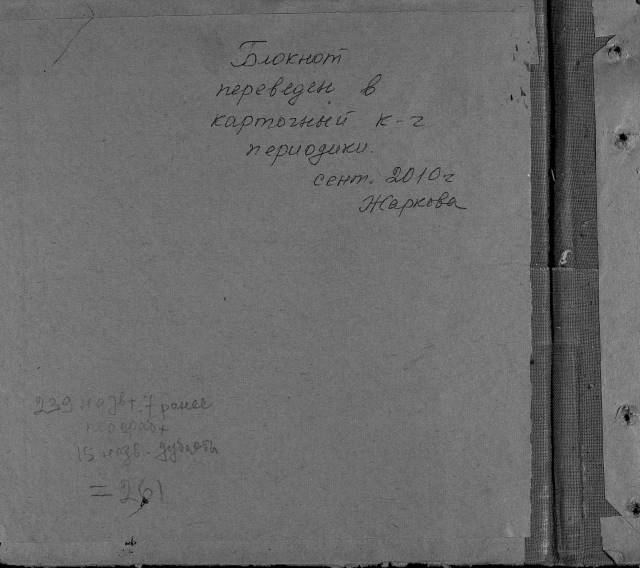 Блокнот
переведен в
карточный к-г
периодики.
сент. 2010г
Жаркова
239 назв + 7 ранее
перераб +
15 назв. - дублеты
= 261